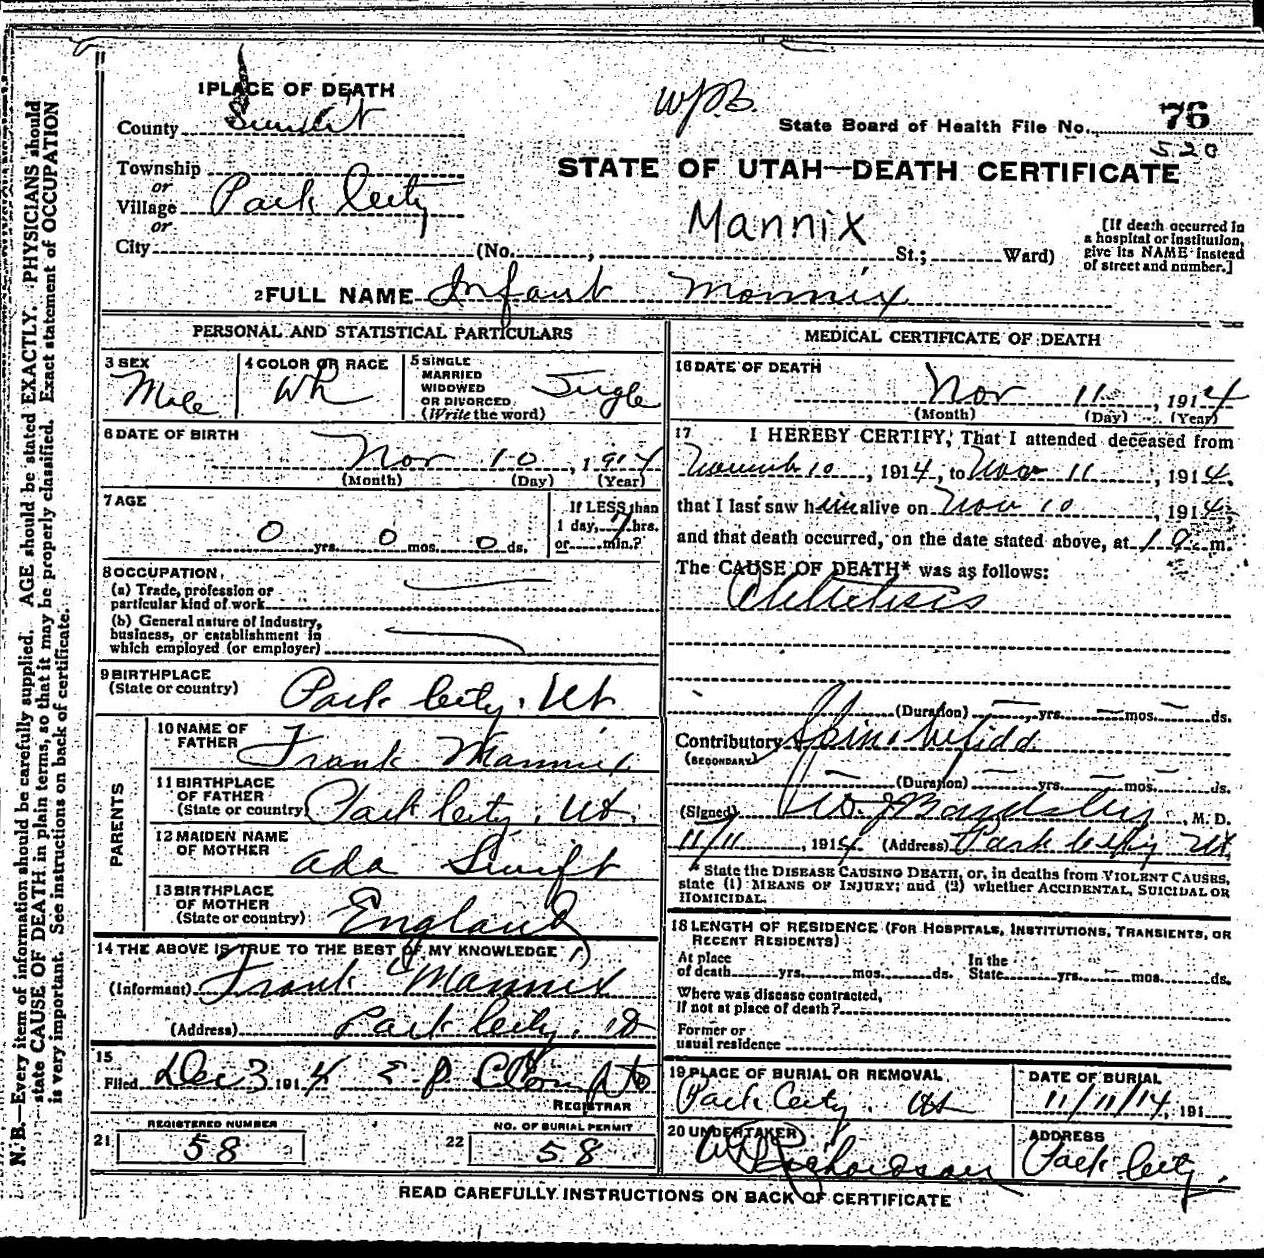 1 PLACE OF DEATH
W.P.B.
County Summit
State Board of Health File No. 76
520
Township
or
Village Park City
or
STATE OF UTAH—DEATH CERTIFICATE
Mannix
City (No. , St.; Ward)
[If death occurred in
a hospital or institution,
give its NAME instead
of street and number.]
2 FULL NAME Infant Mannix
PERSONAL AND STATISTICAL PARTICULARS
3 SEX
Male
4 COLOR OR RACE
Wh
5 SINGLE
MARRIED
WIDOWED
OR DIVORCED
(Write the word)
Single
6 DATE OF BIRTH
Nov 10, 1914
(Month) (Day) (Year)
7 AGE
0 yrs. 0 mos. 0 ds.
If LESS than
1 day, 7 hrs.
or min.?
8 OCCUPATION
(a) Trade, profession or
particular kind of work
(b) General nature of industry,
business, or establishment in
which employed (or employer)
9 BIRTHPLACE
(State or country) Park City, Ut
PARENTS
10 NAME OF
FATHER Frank Mannix
11 BIRTHPLACE
OF FATHER
(State or country) Park City, Ut.
12 MAIDEN NAME
OF MOTHER
Ada Swift
13 BIRTHPLACE
OF MOTHER
(State or country) England
14 THE ABOVE IS TRUE TO THE BEST OF MY KNOWLEDGE
(Informant) Frank Mannix
(Address) Park City, Ut
15
Filed Dec 3 1914 E. P.
REGISTRAR
REGISTERED NUMBER
21 58
NO. OF BURIAL PERMIT
22 58
MEDICAL CERTIFICATE OF DEATH
16 DATE OF DEATH
Nov 11, 1914
(Month) (Day) (Year)
17 I HEREBY CERTIFY, That I attended deceased from
November 10, 1914, to Nov 11, 1914.
that I last saw him alive on Nov 10, 1914,
and that death occurred, on the date stated above, at 1 a. m.
The CAUSE OF DEATH* was as follows:
(Duration) yrs. mos. ds.
Contributory Spina bifida
(SECONDARY)
(Duration) yrs. mos. ds.
(Signed) , M. D.
11/11, 1914 (Address) Park City Ut
* State the DISEASE CAUSING DEATH, or, in deaths from VIOLENT CAUSES,
state (1) MEANS OF INJURY; and (2) whether ACCIDENTAL, SUICIDAL OR
HOMICIDAL.
18 LENGTH OF RESIDENCE (FOR HOSPITALS, INSTITUTIONS, TRANSIENTS, OR
RECENT RESIDENTS)
At place
of death yrs. mos. ds.
In the
State yrs. mos. ds.
Where was disease contracted,
if not at place of death?
Former or
usual residence
19 PLACE OF BURIAL OR REMOVAL
Park City. Ut
DATE OF BURIAL
11/11/14, 191
20 UNDERTAKER
Richardson
ADDRESS
Park City.
READ CAREFULLY INSTRUCTIONS ON BACK OF CERTIFICATE
N. B.—Every item of information should be carefully supplied. AGE should be stated EXACTLY. PHYSICIANS should
state CAUSE OF DEATH in plain terms, so that it may be properly classified. Exact statement of OCCUPATION
is very important. See instructions on back of certificate.